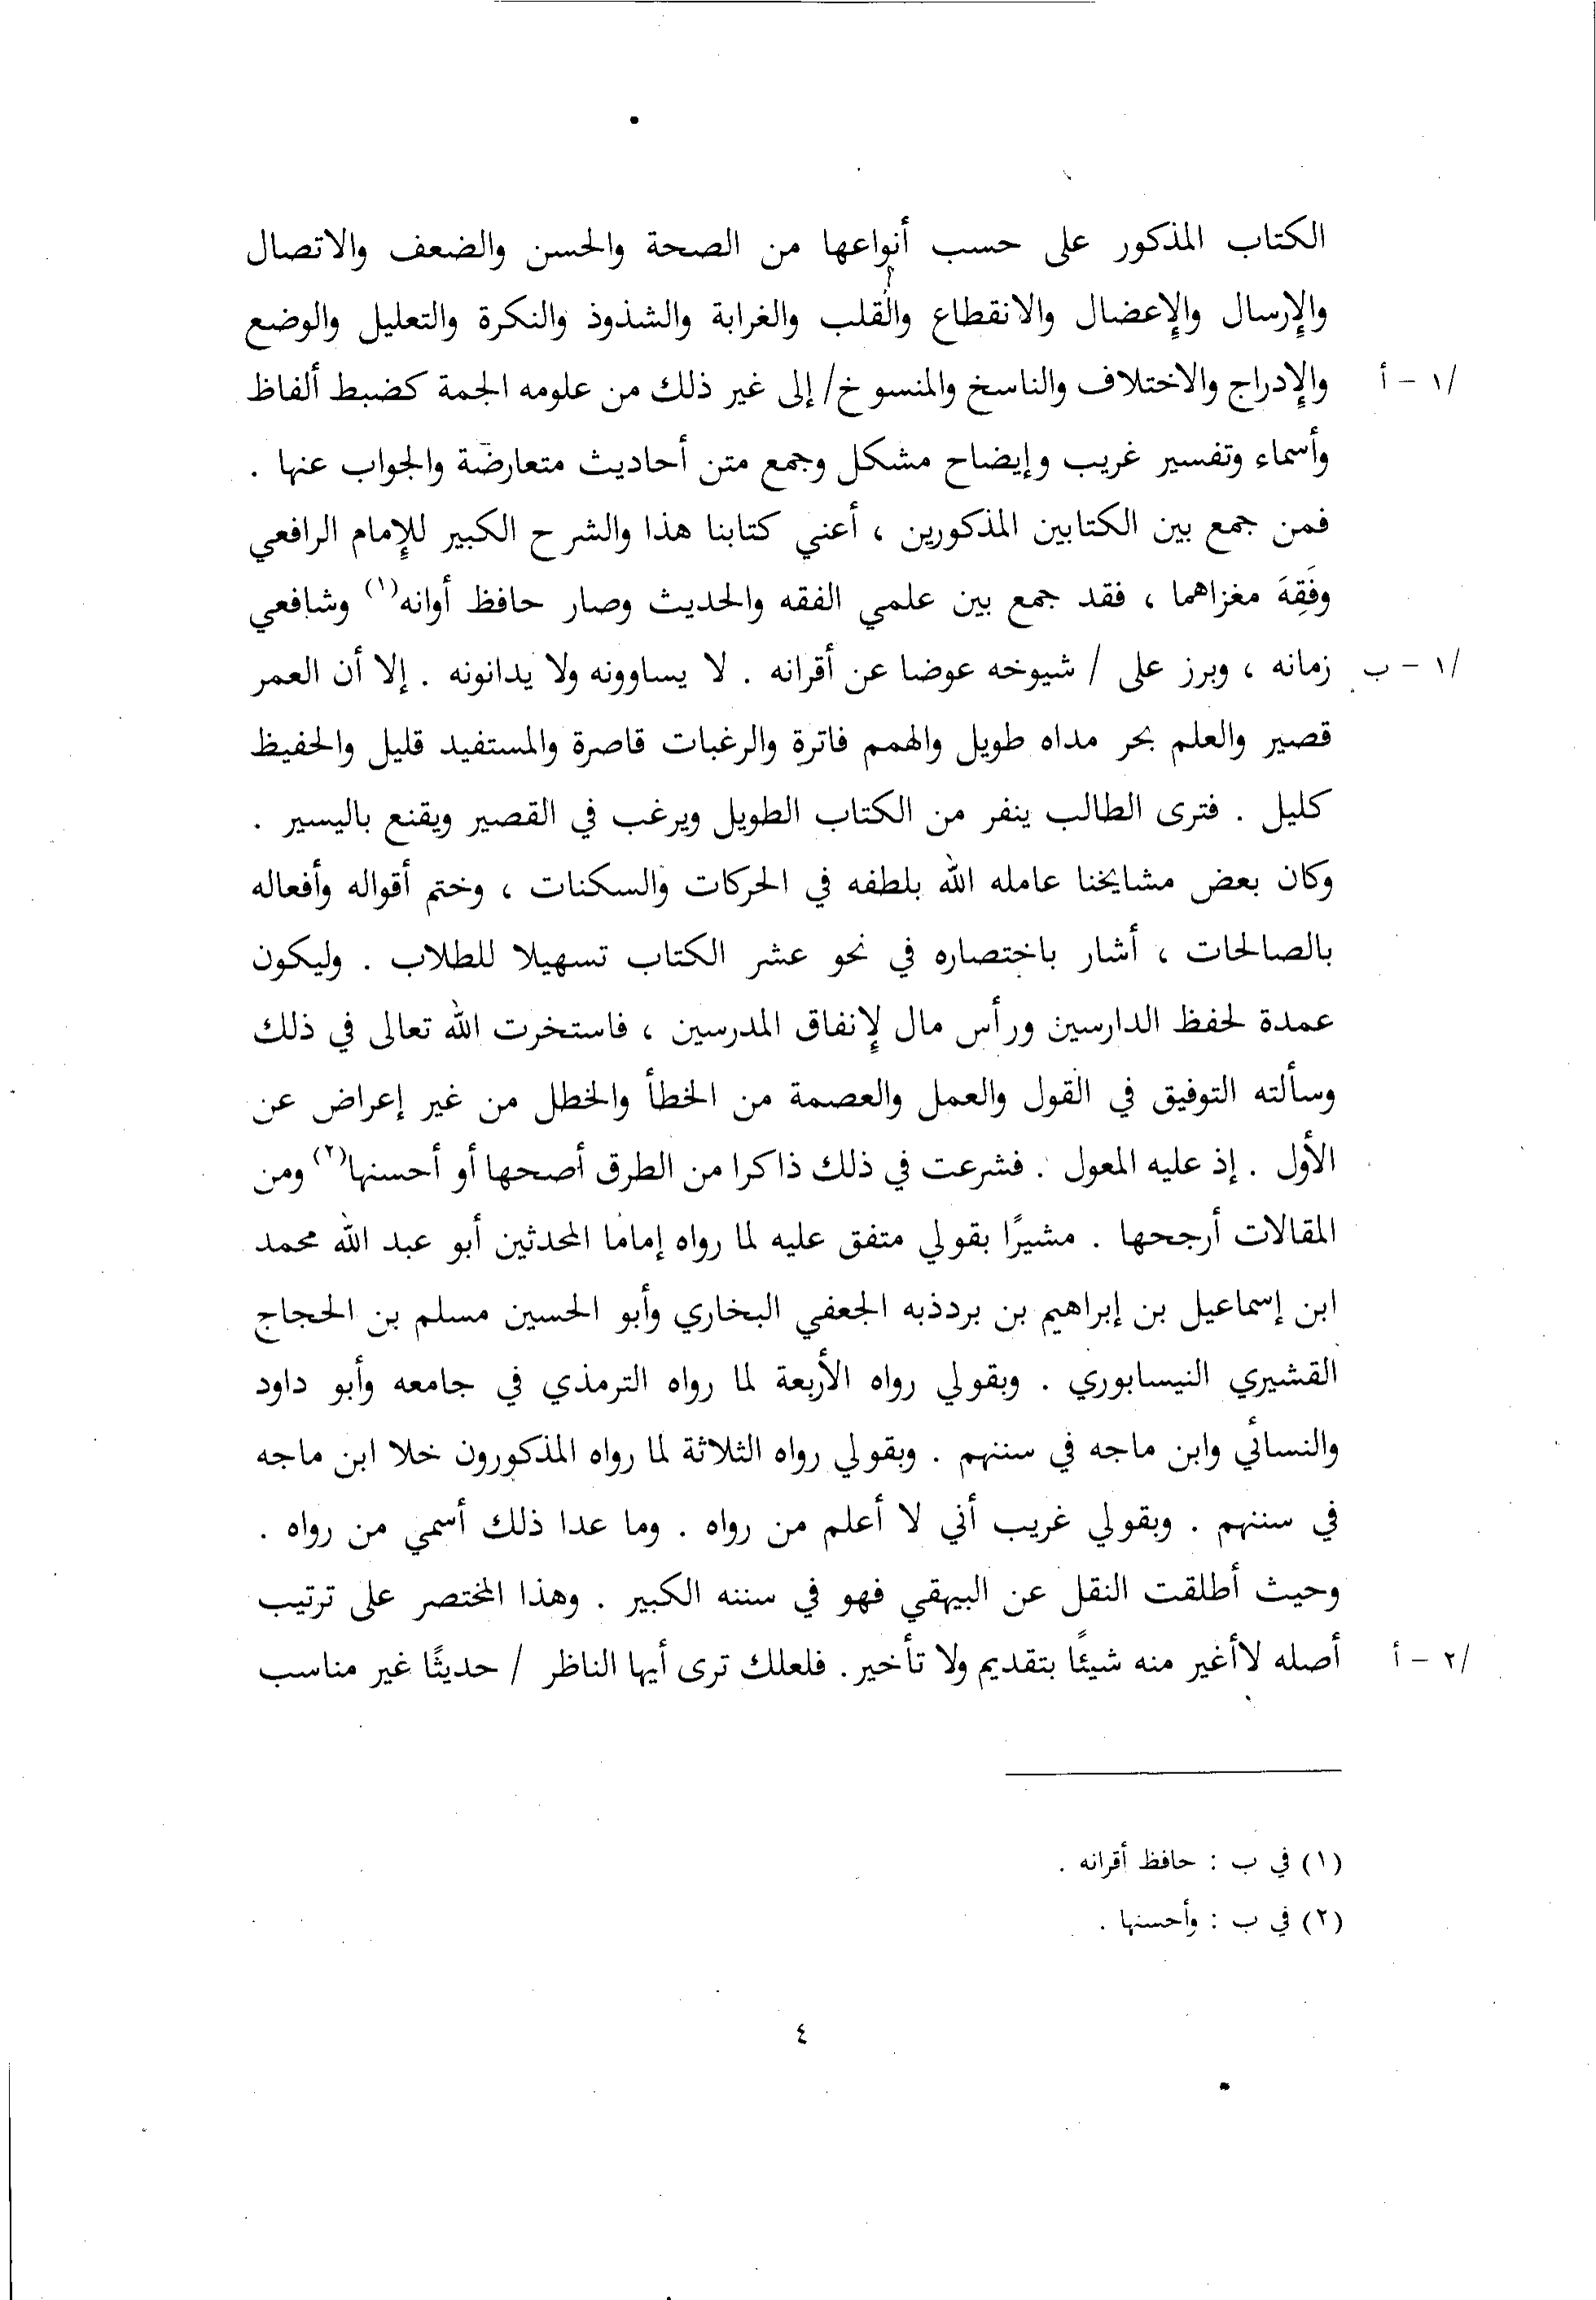 الكتاب المذكور على حسب أنواعها من الصحة والحسن والضعف والاتصال
والإرسال والإعضال والانقطاع والقلب والغرابة والشذوذ والنكرة والتعليل والوضع
/١ - أ والإدراج والاختلاف والناسخ والمنسوخ/ إلى غير ذلك من علومه الجمة كضبط ألفاظ
وأسماء وتفسير غريب وإيضاح مشكل وجمع متن أحاديث متعارضة والجواب عنها .
فمن جمع بين الكتابين المذكورين ، أعني كتابنا هذا والشرح الكبير للإمام الرافعي
وفَقِهَ مغزاهما ، فقد جمع بين علمي الفقه والحديث وصار حافظ أوانه(١) وشافعي
/١ - ب زمانه ، وبرز على / شيوخه عوضا عن أقرانه . لا يساوونه ولا يدانونه . إلا أن العمر
قصير والعلم بحر مداه طويل والهمم فاترة والرغبات قاصرة والمستفيد قليل والحفيظ
كليل . فترى الطالب ينفر من الكتاب الطويل ويرغب في القصير ويقنع باليسير .
وكان بعض مشايخنا عامله الله بلطفه في الحركات والسكنات ، وختم أقواله وأفعاله
بالصالحات ، أشار باختصاره في نحو عشر الكتاب تسهيلا للطلاب . وليكون
عمدة لحفظ الدارسين ورأس مال لإنفاق المدرسين ، فاستخرت الله تعالى في ذلك
وسألته التوفيق في القول والعمل والعصمة من الخطأ والخطل من غير إعراض عن
الأول . إذ عليه المعول . فشرعت في ذلك ذاكرا من الطرق أصحها أو أحسنها(٢) ومن
المقالات أرجحها . مشيرًا بقولي متفق عليه لما رواه إماما المحدثين أبو عبد الله محمد
ابن إسماعيل بن إبراهيم بن بردذبه الجعفي البخاري وأبو الحسين مسلم بن الحجاج
القشيري النيسابوري . وبقولي رواه الأربعة لما رواه الترمذي في جامعه وأبو داود
والنسائي وابن ماجه في سننهم . وبقولي رواه الثلاثة لما رواه المذكورون خلا ابن ماجه
في سننهم . وبقولي غريب أني لا أعلم من رواه . وما عدا ذلك أسمي من رواه .
وحيث أطلقت النقل عن البيهقي فهو في سننه الكبير . وهذا المختصر على ترتيب
/٢ - أ أصله لا أغير منه شيئًا بتقديم ولا تأخير. فلعلك ترى أيها الناظر / حديثًا غير مناسب
(١) في ب : حافظ أقرانه .
(٢) في ب : وأحسنها .
٤